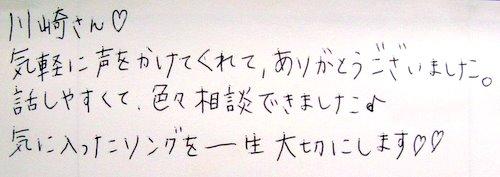 川崎さん♡
気軽に声をかけてくれて、ありがとうございました。
話しやすくて、色々相談できました♪
気に入ったリングを一生大切にします♡♡